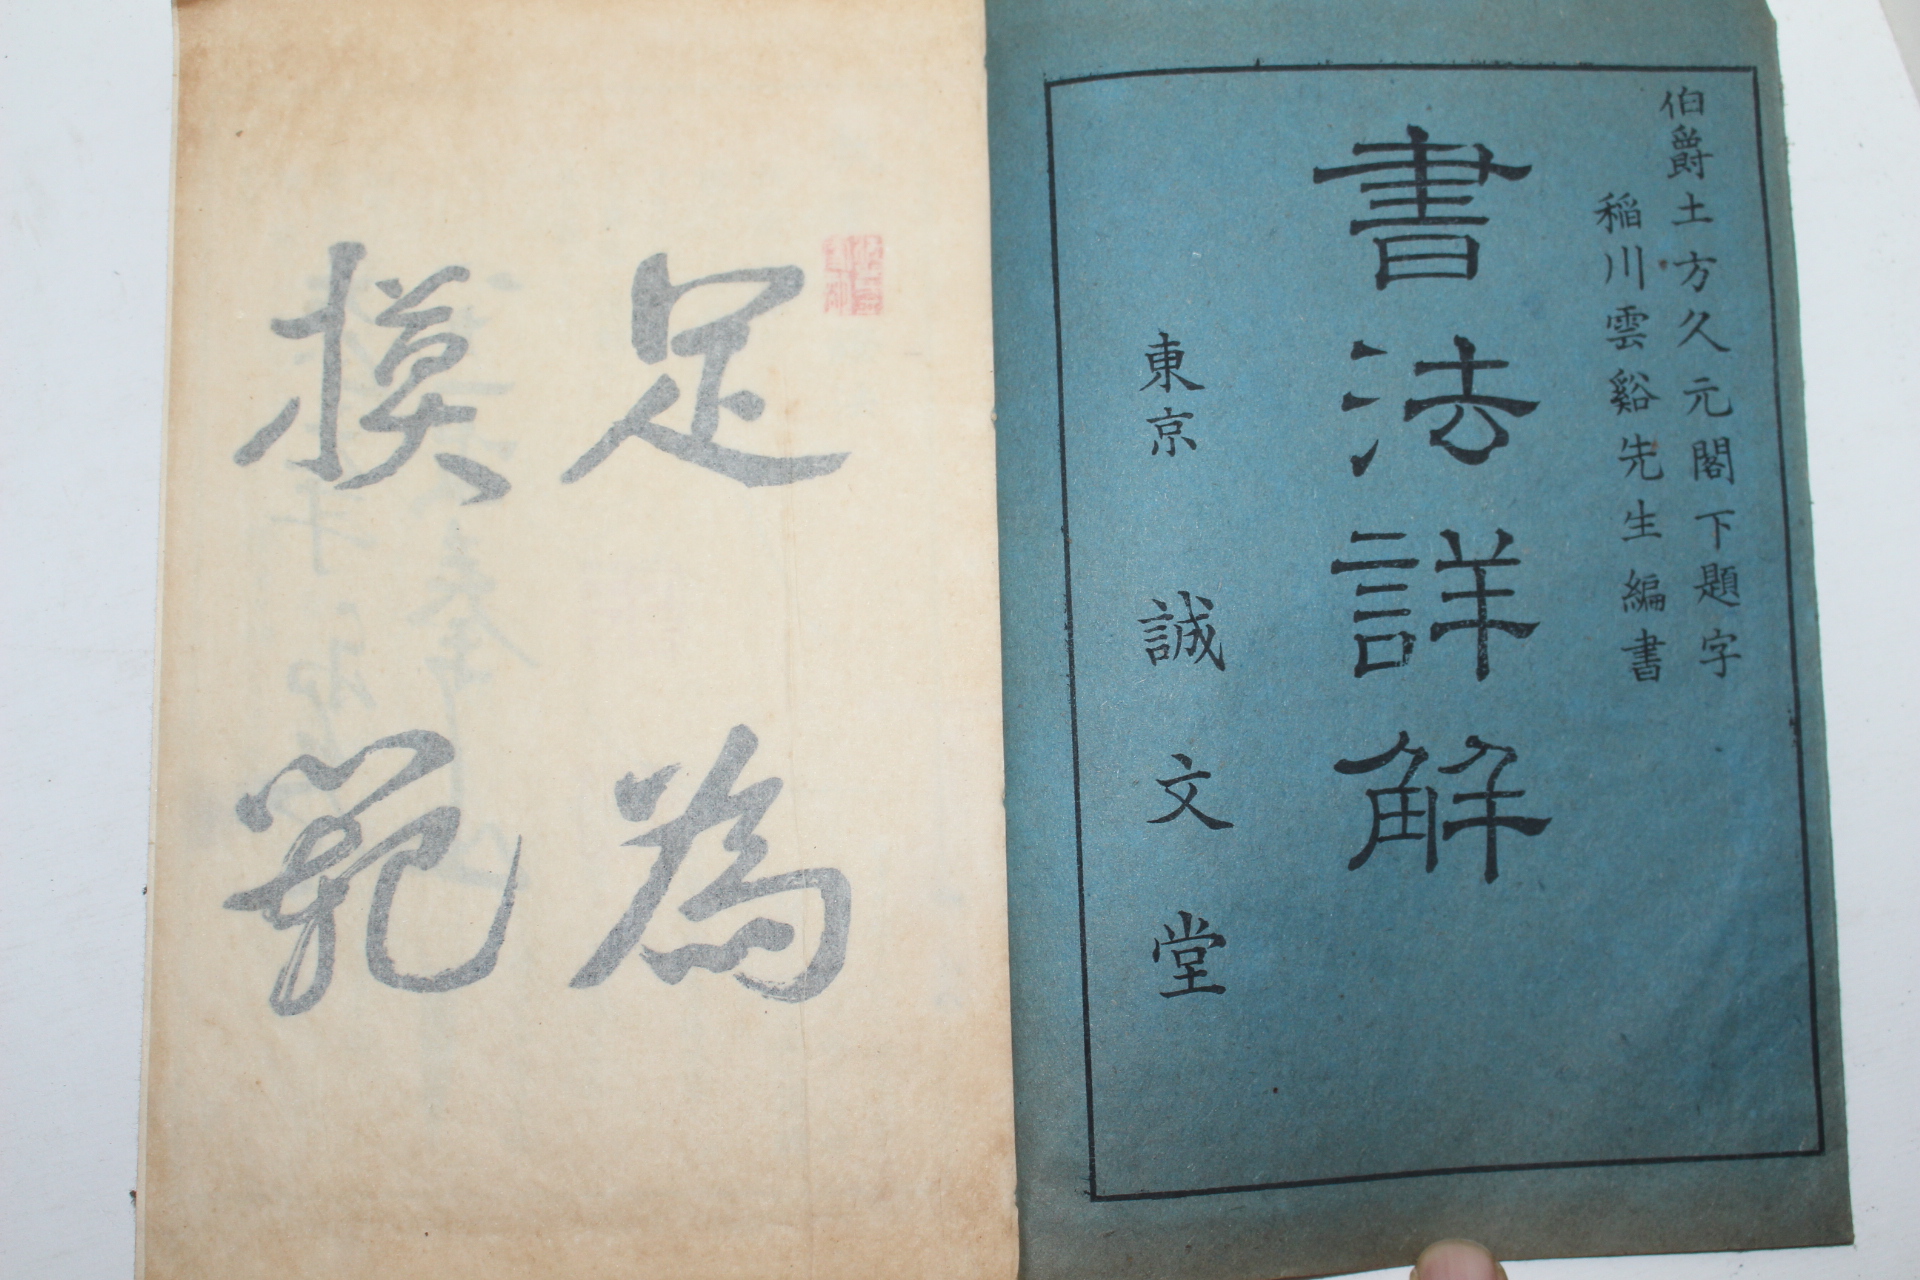 伯爵土方久元閣下題字
稲川雲谿先生編書
書法詳解
東京 誠文堂
足為
模範